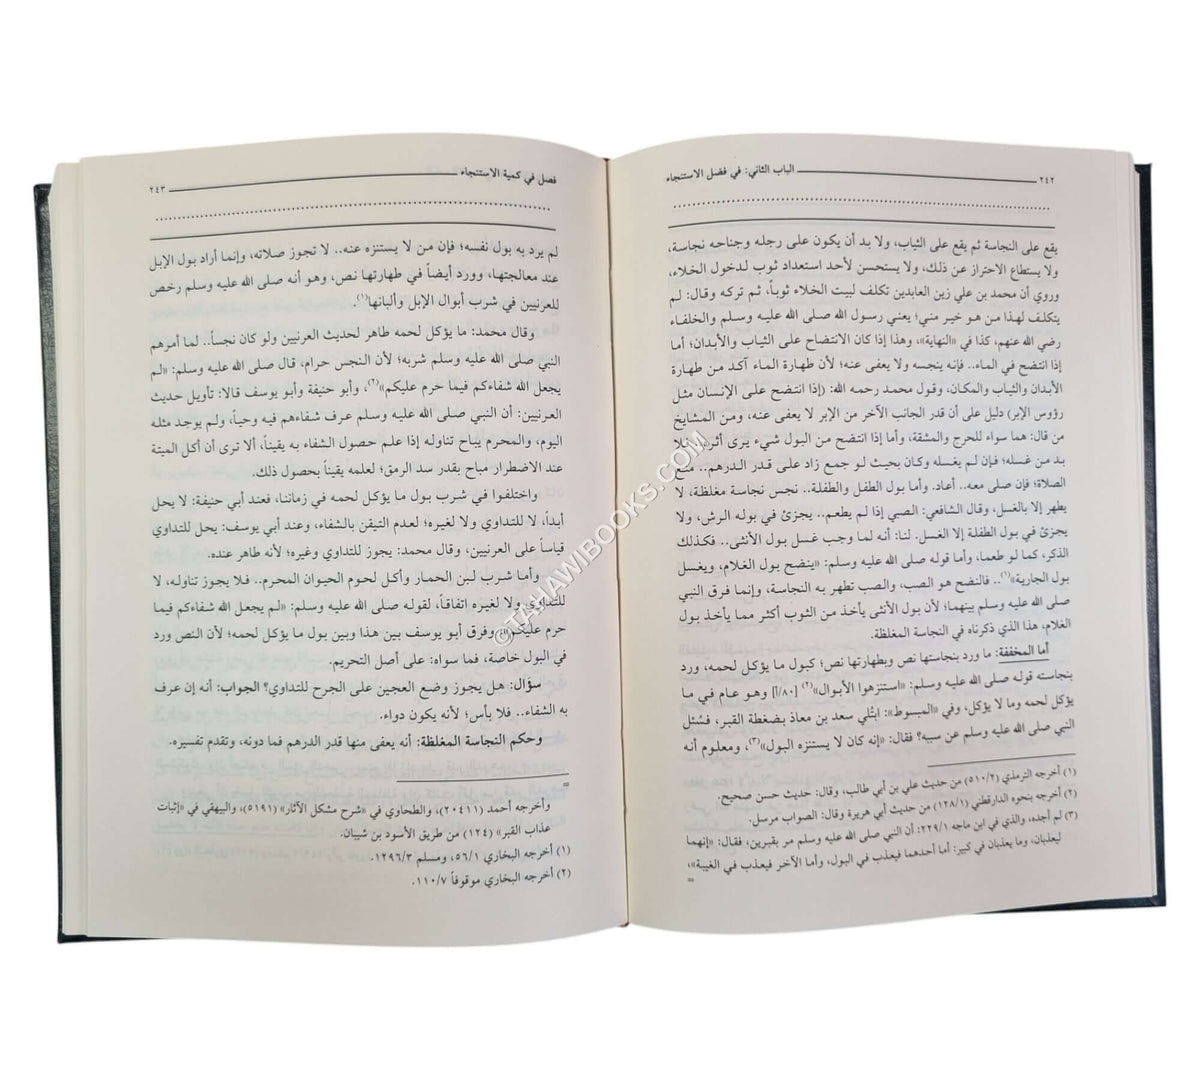 ٢٤٢ الباب الثاني: في فضل الاستنجاء
يقع على النجاسة ثم يقع على الثياب، ولا بد أن يكون على رجله وجناحه نجاسة،
ولا يستطاع الاحتراز عن ذلك، ولا يستحسن لأحد استعداد ثوب لدخول الخلاء،
وروي أن محمد بن علي زين العابدين تكلف لبيت الخلاء ثوباً، ثم تركه وقال: لم
يتكلف لهذا من هو خير مني؛ يعني رسول الله صلى الله عليه وسلم والخلفاء
رضي الله عنهم، كذا في «النهاية»، وهذا إذا كان الانتضاح على الثياب والأبدان؛ أما
إذا انتضح في الماء.. فإنه ينجسه ولا يعفى عنه؛ لأن طهارة الماء آكد من طهارة
الأبدان والثياب والمكان، وقول محمد رحمه الله: (إذا انتضح على الإنسان مثل
رؤوس الإبر) دليل على أن قدر الجانب الآخر من الإبر لا يعفى عنه، ومن المشايخ
من قال: هما سواء للحرج والمشقة، وأما إذا انتضح من البول شيء يرى أثره.. فلا
بد من غسله؛ فإن لم يغسله وكان بحيث لو جمع زاد على قدر الدرهم.. منع
الصلاة؛ فإن صلى معه.. أعاد. وأما بول الطفل والطفلة.. نجس نجاسة مغلظة، لا
يطهر إلا بالغسل، وقال الشافعي: الصبي إذا لم يطعم.. يجزئ في بوله الرش، ولا
يجزئ في بول الطفلة إلا الغسل. لنا: أنه لما وجب غسل بول الأنثى.. فكذلك
الذكر، كما لو طعما، وأما قوله صلى الله عليه وسلم: «ينضح بول الغلام، ويغسل
بول الجارية»(١).. فالنضح هو الصب، والصب تطهر به النجاسة، وإنما فرق النبي
صلى الله عليه وسلم بينهما؛ لأن بول الأنثى يأخذ من الثوب أكثر مما يأخذ بول
الغلام، هذا الذي ذكرناه في النجاسة المغلظة.
أما المخففة: ما ورد بنجاستها نص وبطهارتها نص؛ كبول ما يؤكل لحمه، ورد
بنجاسته قوله صلى الله عليه وسلم: «استنزهوا الأبوال»(٢) [٨٠/أ] وهو عام في ما
يؤكل لحمه وما لا يؤكل، وفي «المبسوط»: ابتُلي سعد بن معاذ بضغطة القبر، فسُئل
النبي صلى الله عليه وسلم عن سببه؟ فقال: «إنه كان لا يستنزه البول»(٣)، ومعلوم أنه
(١) أخرجه الترمذي (٥١٠/٢) من حديث علي بن أبي طالب، وقال: حديث حسن صحيح.
(٢) أخرجه بنحوه الدارقطني (١٢٨/١) من حديث أبي هريرة وقال: الصواب مرسل.
(٣) لم أجده، والذي في ابن ماجه ٢٢٩/١: أن النبي صلى الله عليه وسلم مر بقبرين، فقال: «إنهما
ليعذبان، وما يعذبان في كبير: أما أحدهما فيعذب في البول، وأما الآخر فيعذب في الغيبة»،
=
فصل في كمية الاستنجاء ٢٤٣
لم يرد به بول نفسه؛ فإن من لا يستنزه عنه.. لا تجوز صلاته، وإنما أراد بول الإبل
عند معالجتها، وورد أيضاً في طهارتها نص، وهو أنه صلى الله عليه وسلم رخص
للعرنيين في شرب أبوال الإبل وألبانها(١).
وقال محمد: ما يؤكل لحمه طاهر لحديث العرنيين ولو كان نجساً.. لما أمرهم
النبي صلى الله عليه وسلم شربه؛ لأن النجس حرام، قال صلى الله عليه وسلم: «لم
يجعل الله شفاءكم فيما حرم عليكم»(٢)، وأبو حنيفة وأبو يوسف قالا: تأويل حديث
العرنيين: أن النبي صلى الله عليه وسلم عرف شفاءهم فيه وحياً، ولم يوجد مثله
اليوم، والمحرم يباح تناوله إذا علم حصول الشفاء به يقيناً، ألا ترى أن أكل الميتة
عند الاضطرار مباح بقدر سد الرمق؛ لعلمه يقيناً بحصول ذلك.
واختلفوا في شرب بول ما يؤكل لحمه في زماننا، فعند أبي حنيفة: لا يحل
أبداً، لا للتداوي ولا لغيره؛ لعدم التيقن بالشفاء، وعند أبي يوسف: يحل للتداوي
قياساً على العرنيين، وقال محمد: يجوز للتداوي وغيره؛ لأنه طاهر عنده.
وأما شرب لبن الحمار وأكل لحوم الحيوان المحرم.. فلا يجوز تناوله، لا
للتداوي ولا لغيره اتفاقاً، لقوله صلى الله عليه وسلم: «لم يجعل الله شفاءكم فيما
حرم عليكم» وفرق أبو يوسف بين هذا وبين بول ما يؤكل لحمه؛ لأن النص ورد
في البول خاصة، فما سواه: على أصل التحريم.
سؤال: هل يجوز وضع العجين على الجرح للتداوي؟ الجواب: أنه إن عرف
به الشفاء.. فلا بأس؛ لأنه يكون دواء.
وحكم النجاسة المغلظة: أنه يعفى منها قدر الدرهم فما دونه، وتقدم تفسيره.
=
وأخرجه أحمد (٢٠٤١١)، والطحاوي في «شرح مشكل الآثار» (٥١٩١)، والبيهقي في «إثبات
عذاب القبر» (١٢٤) من طريق الأسود بن شيبان.
(١) أخرجه البخاري ٥٦/١، ومسلم ١٢٩٦/٣.
(٢) أخرجه البخاري موقوفاً ١١٠/٧.
©TAHAWIBOOKS.COM